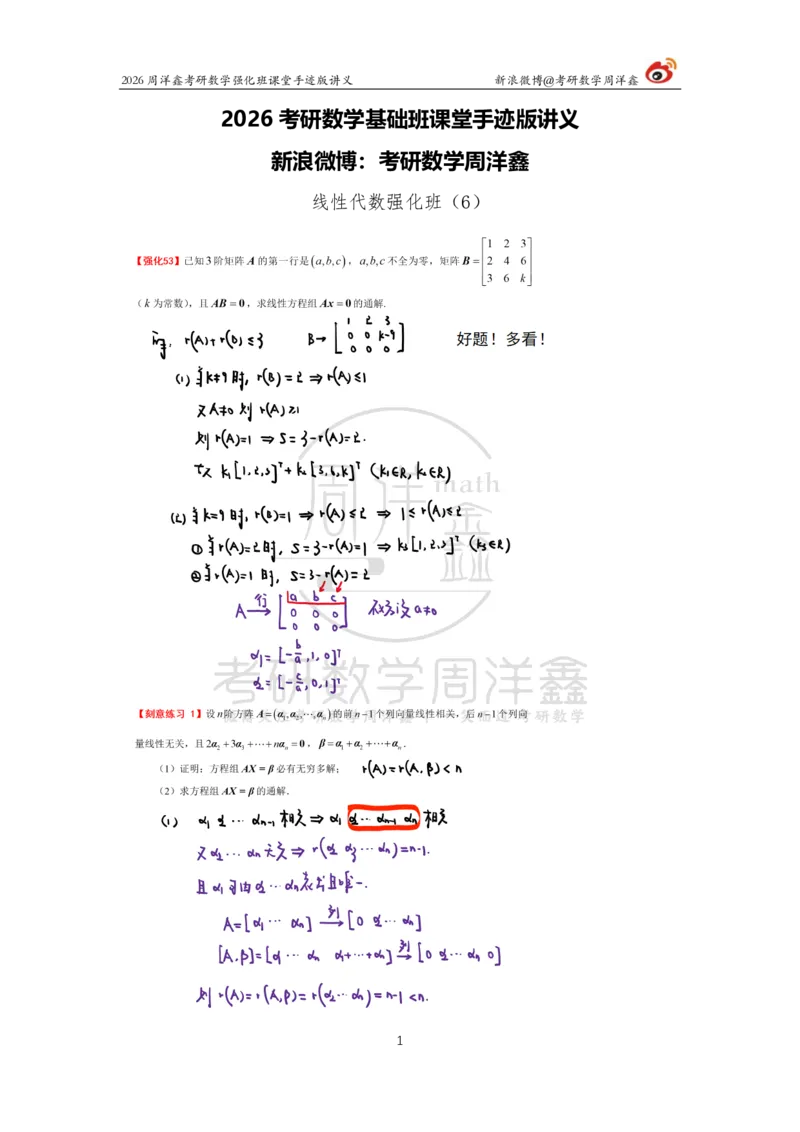 2026周洋鑫考研数学强化班课堂手迹版讲义 新浪微博@考研数学周洋鑫
2026 考研数学基础班课堂手迹版讲义
新浪微博：考研数学周洋鑫
线性代数强化班（6）
【强化53】已知3阶矩阵A的第一行是(a,b,c)，a,b,c不全为零，矩阵B=[1 2 3; 2 4 6; 3 6 k]
（k为常数），且AB=0，求线性方程组Ax=0的通解.
r(A)+r(B)≤3 B→[1 2 3; 0 0 k-9; 0 0 0] 好题！多看！
(1) 当k≠9时, r(B)=2 ⇒ r(A)≤1
又A≠0 则 r(A)≥1
则 r(A)=1 ⇒ S=3-r(A)=2.
故 k₁[1,2,3]ᵀ+k₂[3,6,k]ᵀ (k₁∈R, k₂∈R)
(2) 当k=9时, r(B)=1 ⇒ r(A)≤2 ⇒ 1≤r(A)≤2
① 当r(A)=2时, S=3-r(A)=1 ⇒ k₃[1,2,3]ᵀ (k₃∈R)
② 当r(A)=1时, S=3-r(A)=2
A 行→ [a b c; 0 0 0; 0 0 0] 不妨设a≠0
α₁=[-b/a,1,0]ᵀ
α₂=[-c/a,0,1]ᵀ
周洋鑫
math
考研数学周洋鑫
【刻意练习 1】设n阶方阵A=(α₁,α₂,⋯,αₙ)的前n−1个列向量线性相关，后n−1个列向
量线性无关，且2α₂+3α₃+⋯+nαₙ=0，β=α₁+α₂+⋯+αₙ.
（1）证明：方程组AX=β必有无穷多解； r(A)=r(A,β)<n
（2）求方程组AX=β的通解.
(1) α₁ α₂ ⋯ αₙ₋₁ 相关 ⇒ α₁ α₂ ⋯ αₙ₋₁ αₙ 相关
又α₂⋯αₙ无关 ⇒ r(α₂ α₃ ⋯ αₙ)=n-1.
且α₁可由α₂⋯αₙ表出且唯一.
A=[α₁ ⋯ αₙ] 列→ [0 α₂ ⋯ αₙ]
[A,β]=[α₁ ⋯ αₙ α₁+⋯+αₙ] 列→ [0 α₂ ⋯ αₙ 0]
则 r(A)=r(A,β)=r(α₂⋯αₙ)=n-1<n.
1